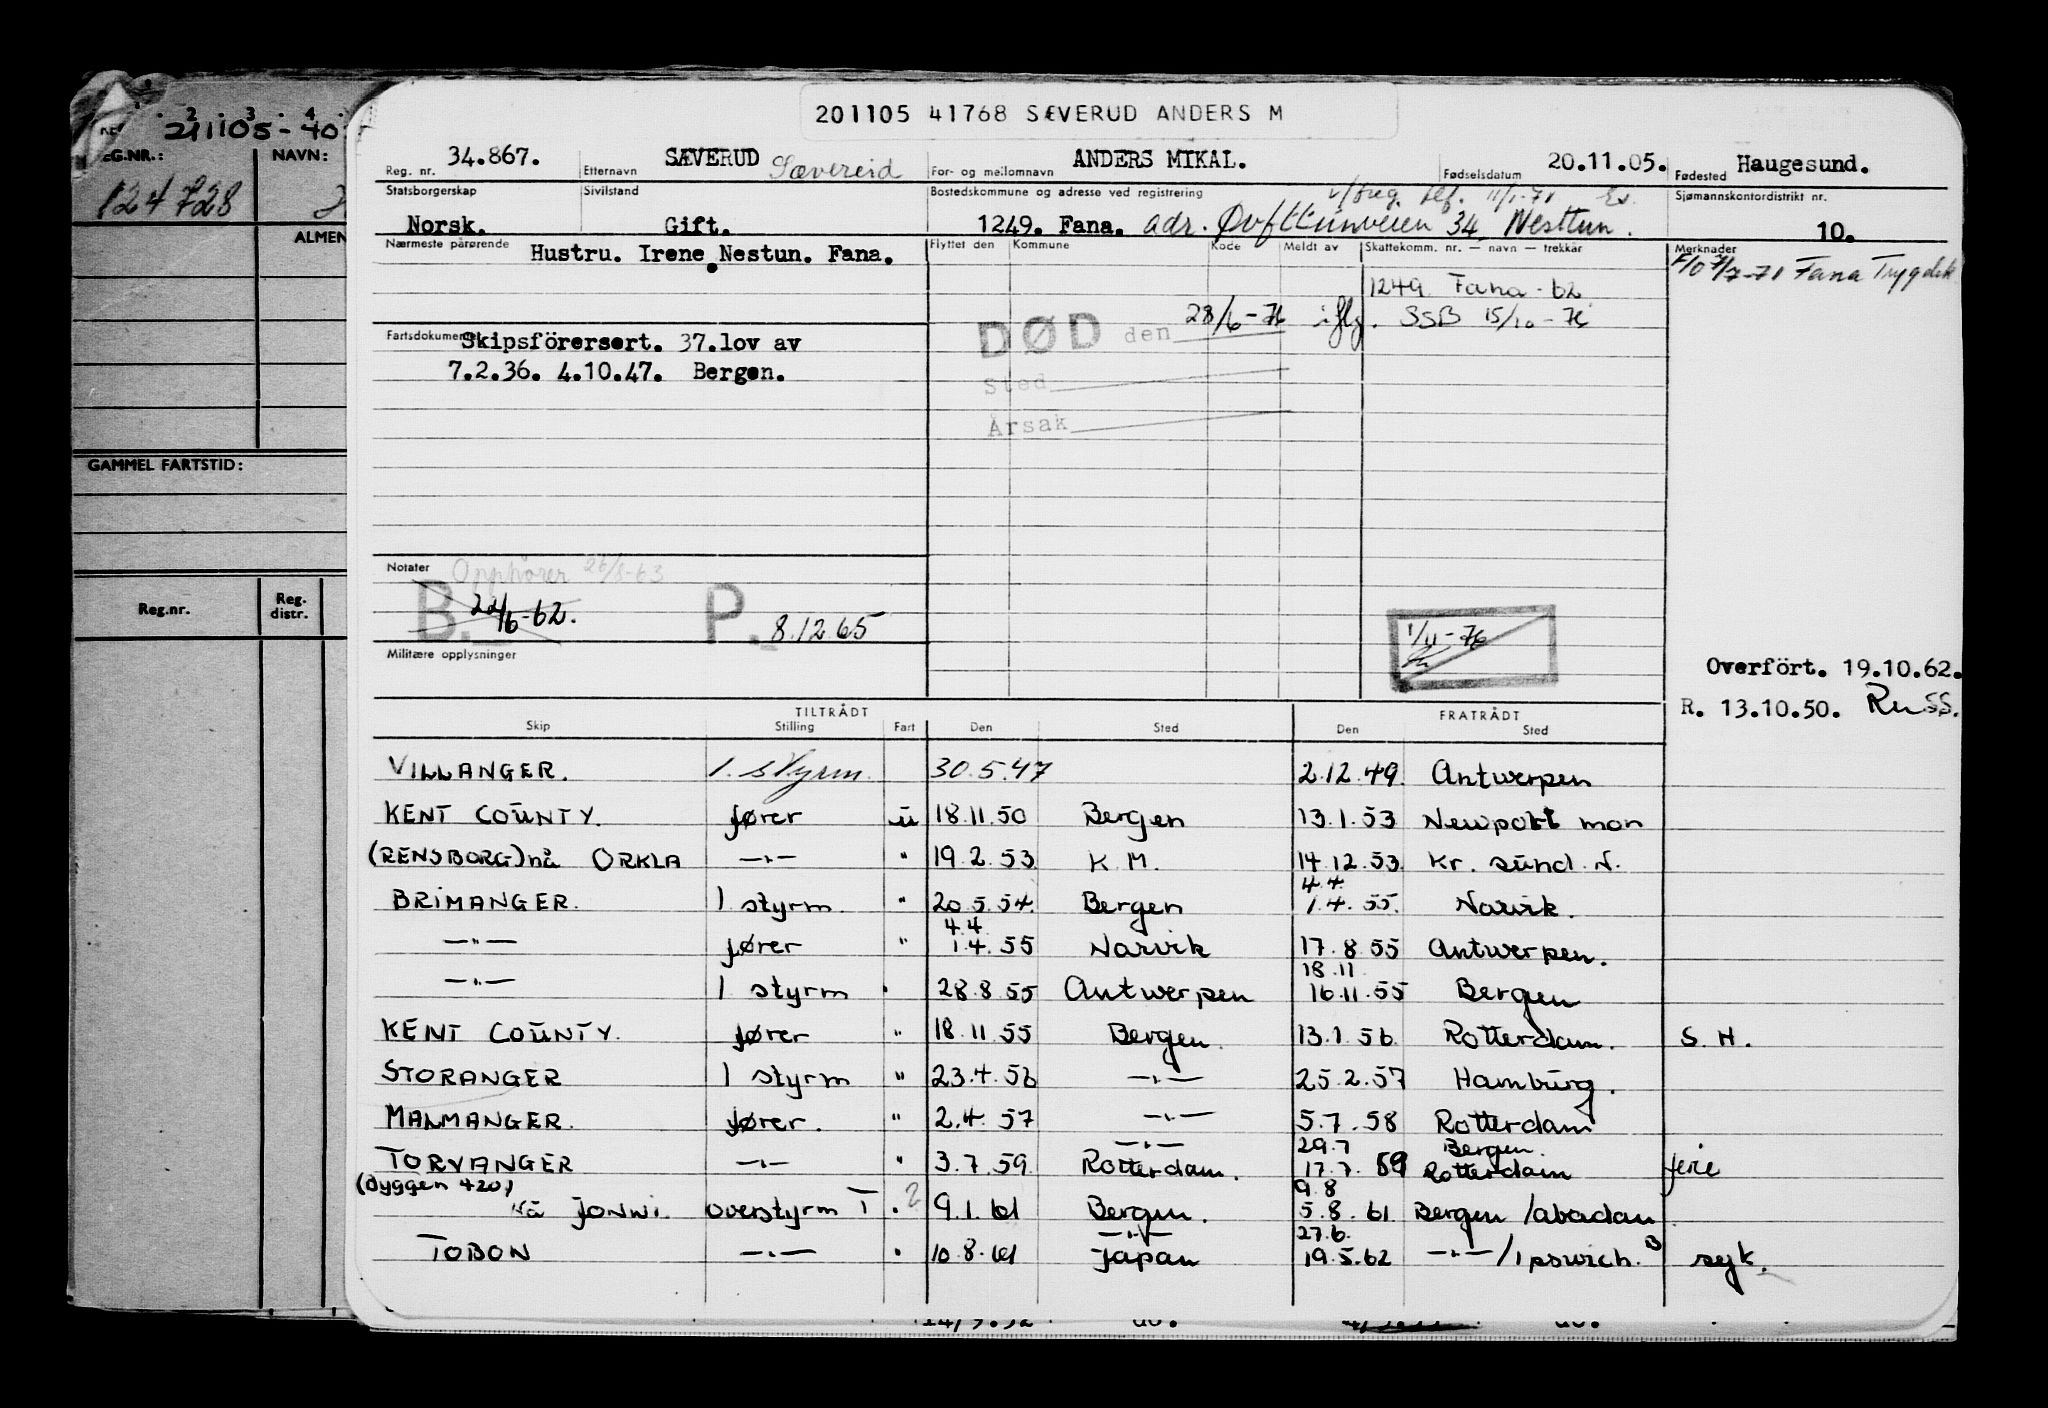 201105 41768 SÆVERUD ANDERS M
211105-40
REG.NR.: NAVN:
124728
ALMEN
GAMMEL FARTSTID:
Reg.nr. Reg. distr.
Reg. nr. 34.867. Etternavn SÆVERUD Sævereid For- og mellomnavn ANDERS MIKAL. Fødselsdatum 20.11.05. Fødested Haugesund.
Statsborgerskap Sivilstand Bostedskommune og adresse ved registrering 11/1-71 Sjømannskontordistrikt nr.
Norsk. Gift. 1249. Fana. adr. 34 Nesttun. 10.
Nærmeste pårørende Hustru. Irene Nestun. Fana. Flyttet den Kommune Kode Meldt av Skattekomm. nr. — navn — trekkår Merknader
7/7-71 Fana Trygdek
1249 Fana - 62
DØD den 28/6-76 iflg. SSB 15/10-76
Sted
Årsak
Fartsdokumenter Skipsförersert. 37.lov av
7.2.36. 4.10.47. Bergen.
Notater Opphører 26/8-63
B. 22/6-62. P. 8.12.65
1/11-76
Militære opplysninger
Overfört. 19.10.62.
R. 13.10.50. Russ.
TILTRÅDT FRATRÅDT
Skip Stilling Fart Den Sted Den Sted
VILLANGER. 1. styrm. 30.5.47 2.12.49. Antwerpen
KENT COUNTY. fører u 18.11.50 Bergen 13.1.53 Newport mon
(RENSBORG) nå ORKLA —"— " 19.2.53 K M. 14.12.53. Kr. sund. N.
4.4.
BRIMANGER. 1 styrm. " 20.5.54. Bergen 1.4.55. Narvik.
4.4
—"— fører " 1.4.55 Narvik 17.8.55 Antwerpen.
18.11
—"— 1 styrm " 28.8.55 Antwerpen 16.11.55 Bergen
KENT COUNTY. fører " 18.11.55 Bergen. 13.1.56 Rotterdam. S. H.
STORANGER 1 styrm " 23.4.56 —"— 25.2.57 Hamburg.
MALMANGER. fører. " 2.4.57 —"— 5.7.58 Rotterdam
—"— 29.7 Bergen.
TORVANGER —"— " 3.7.59 Rotterdam. 17.7.59 Rotterdam ferie
(Byggen 420) 9.8
nå JONNI. overstyrm T " 2 9.1.61 Bergen. 5.8.61 Bergen /abadan
—"— 27.6.
TOBON —"— " 10.8.61 Japan 19.5.62 —"—/Ipswich. B syk.